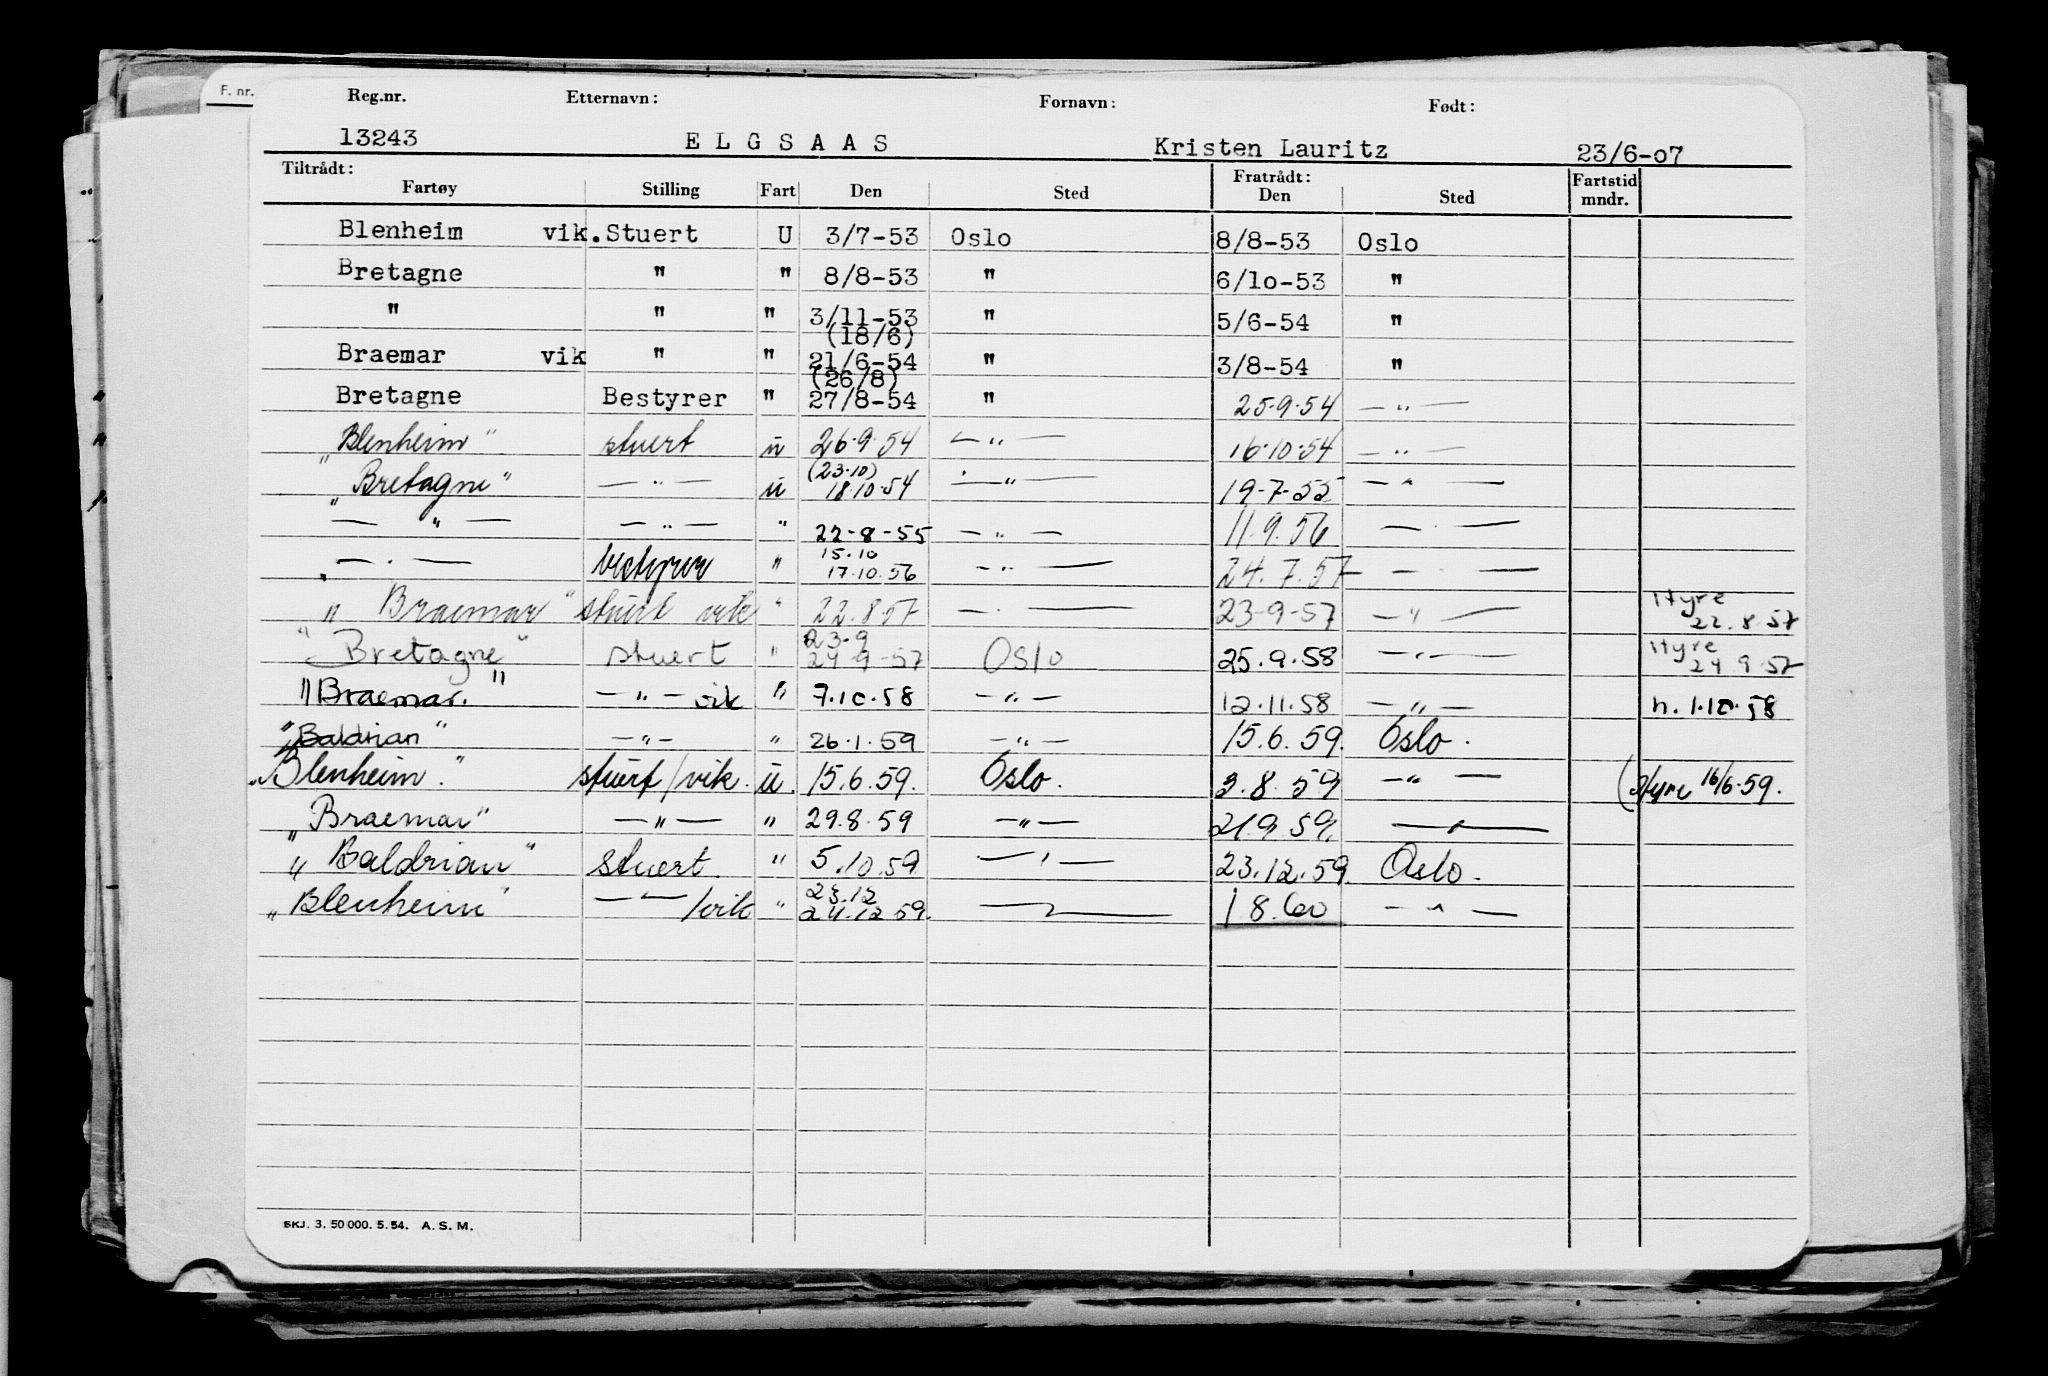 F. nr.
Reg.nr. Etternavn: Fornavn: Født:
13243 ELGSAAS Kristen Lauritz 23/6-07
Tiltrådt: Fratrådt: Fartstid
Fartøy Stilling Fart Den Sted Den Sted mndr.
Blenheim vik. Stuert U 3/7-53 Oslo 8/8-53 Oslo
Bretagne " " 8/8-53 " 6/10-53 "
" " " 3/11-53 " 5/6-54 "
(18/6)
Braemar vik " " 21/6-54 " 3/8-54 "
(26/8)
Bretagne Bestyrer " 27/8-54 " 25.9.54 — " —
"Blenheim" stuert u 26.9.54 — " — 16.10.54 — " —
(23.10)
"Bretagne" — " — u 18.10.54 — " — 19-7-55 — " —
— " — — " — " 22-8-55 — " — 11.9.56 — " —
15.10
— " — bestyrer " 17.10.56 — " — 24.7.57 — " —
"Braemar" stuert vik " 22.8.57 — " — 23-9-57 — " — Hyre 22.8.57
23-9
"Bretagne" stuert " 24-9-57 Oslo 25.9.58 — " — Hyre 24.9.57
"Braemar." — " — vik " 7.10.58 — " — 12.11.58 — " — h. 1.10.58
"Baldrian" — " — " 26.1.59 — " — 15.6.59. Oslo.
"Blenheim." stuert/vik. u. 15.6.59. Oslo. 3.8.59 — " — (Hyre 16/6.59.
"Braemar" — " — " 29.8.59 — " — 21.9.59. — " —
"Baldrian" stuert. " 5.10.59 — " — 23.12.59. Oslo.
23.12
"Blenheim" — " — /vik " 24.12.59. — " — 1.8.60 — " —
SKJ. 3. 50 000. 5. 54. A. S. M.